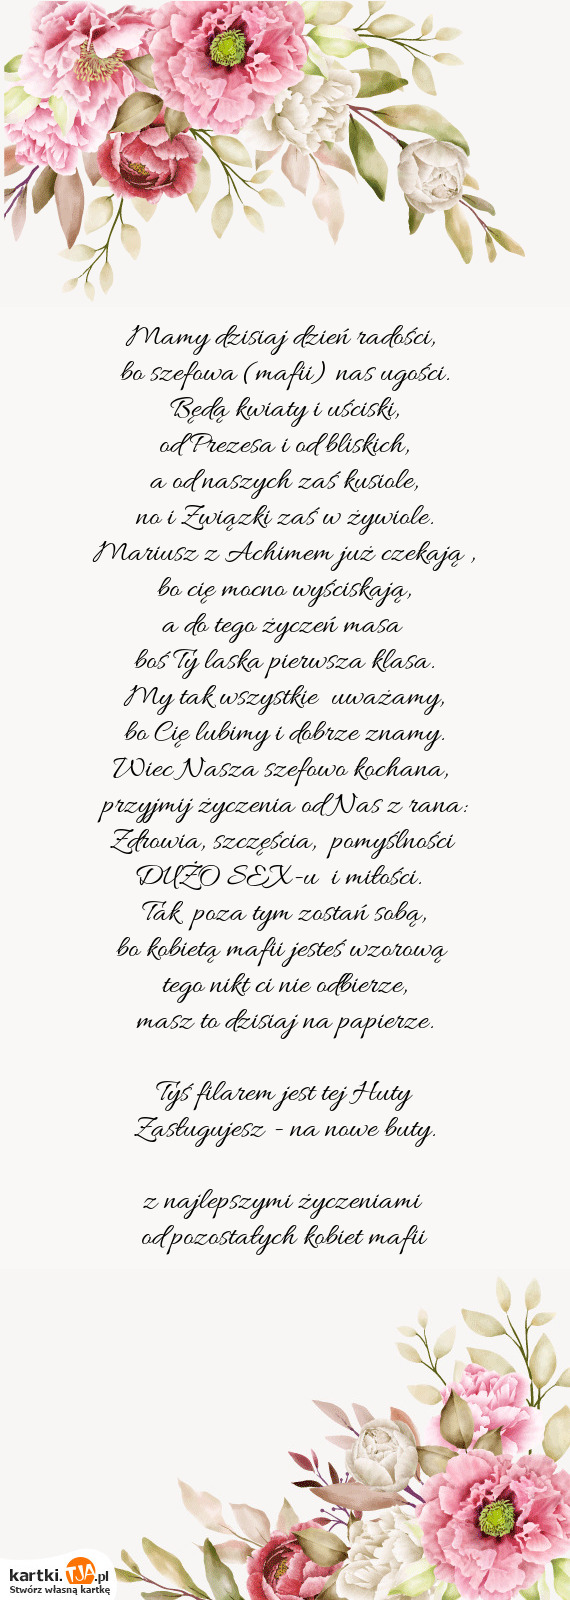 Mamy dzisiaj dzień radości,
bo szefowa (mafii) nas ugości.
Będą kwiaty i uściski,
od Prezesa i od bliskich,
a od naszych zaś kusiole,
no i Związki zaś w żywiole.
Mariusz z Achimem już czekają ,
bo cię mocno wyściskają,
a do tego życzeń masa
boś Ty laska pierwsza klasa.
My tak wszystkie uważamy,
bo Cię lubimy i dobrze znamy.
Wiec Nasza szefowo kochana,
przyjmij życzenia od Nas z rana:
Zdrowia, szczęścia, pomyślności
DUŻO SEX-u i miłości.
Tak poza tym zostań sobą,
bo kobietą mafii jesteś wzorową
tego nikt ci nie odbierze,
masz to dzisiaj na papierze.
Tyś filarem jest tej Huty
Zasługujesz - na nowe buty.
z najlepszymi życzeniami
od pozostałych kobiet mafii
kartki.TJA.pl
Stwórz własną kartkę